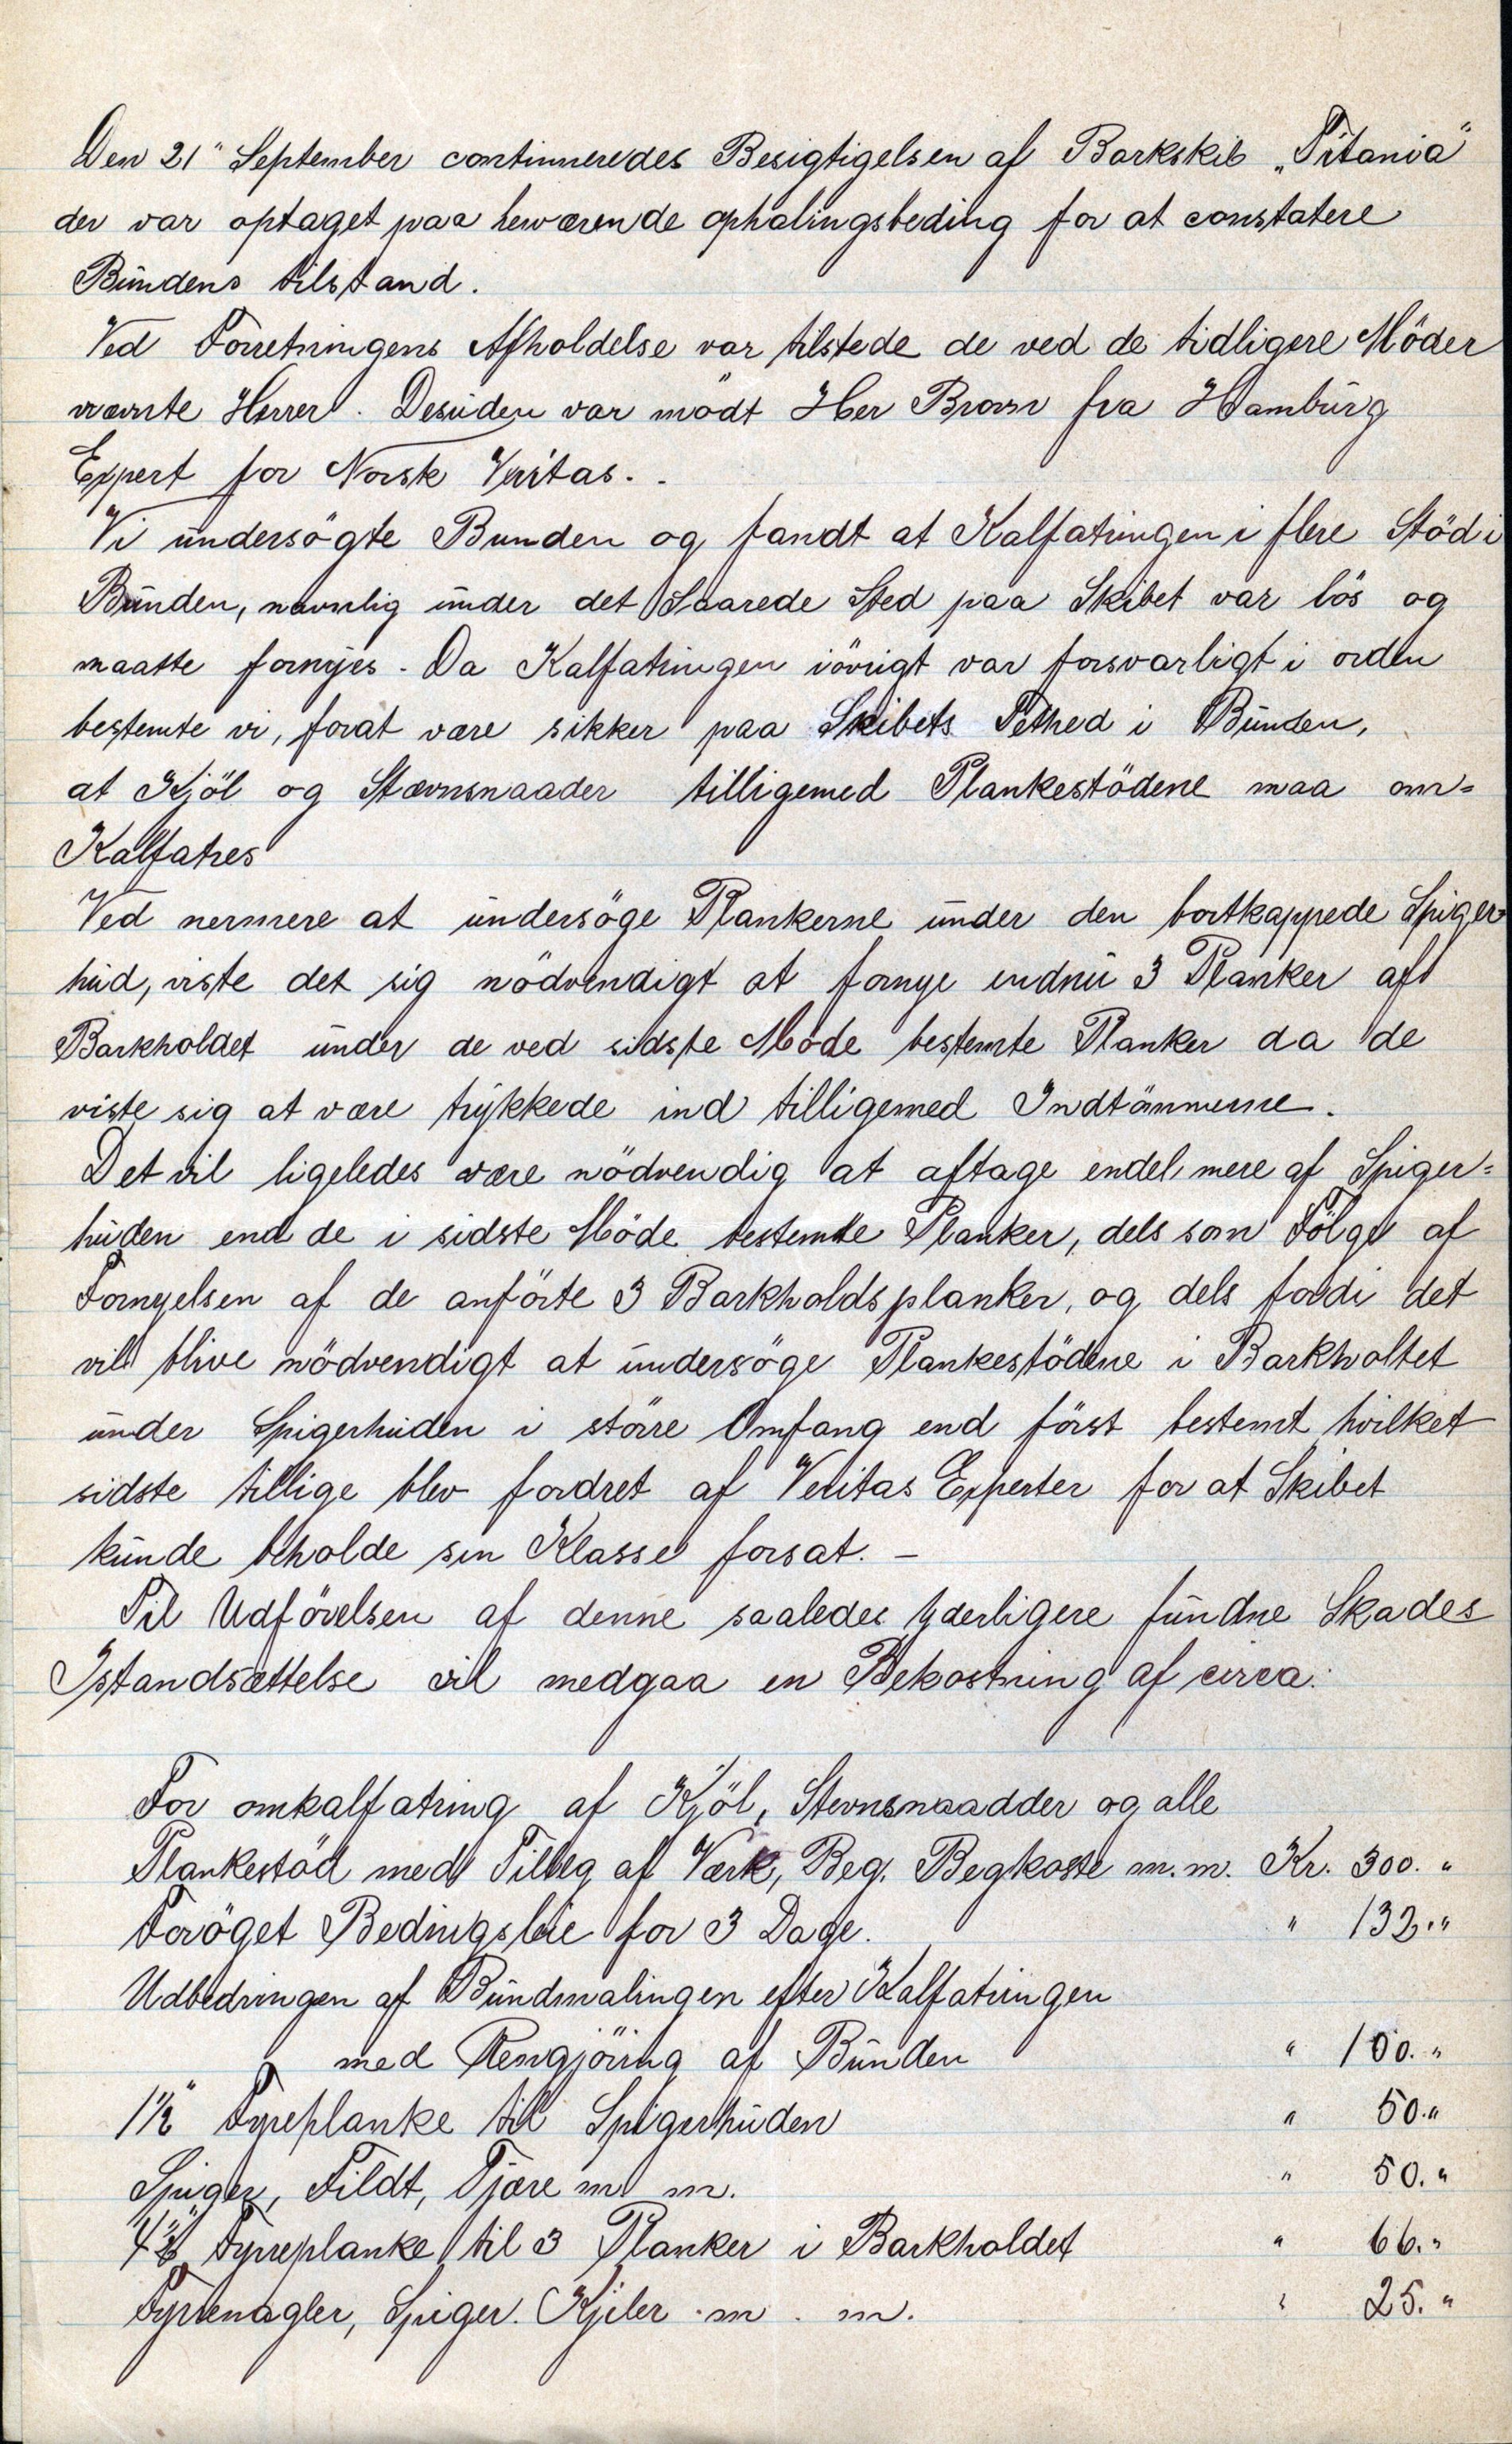 Den 21" September continueredes Besigtigelsen af Barkskib „Titania"
der var optaget paa herværende ophalingsbeding for at constatere
Bundens tilstand.
Ved Forretningens Afholdelse var tilstede de ved de tidligere Möder
nævnte Herrer. Desuden var mödt Herr Brown fra Hamburg
Expert for Norsk Veritas. -
Vi undersögte Bunden og fandt at Kalfatringen i flere Stöd i
Bunden, navnlig under det Skaarede Sted paa Skibet var lös og
maatte fornyes. Da Kalfatringen iövrigt var forsvarligt i orden
bestemte vi, forat være sikker paa Skibets Tethed i Bunden,
at Kjöl og Stævnsnaader tilligemed Plankestödene maa om=
Kalfatres
Ved nermere at undersöge Plankerne under den bortkappede Spiger=
hud, viste det sig nödvendigt at fornye endnu 3 Planker af
Barkholdet under de ved sidste Möde bestemte Planker da de
viste sig at være trykkede ind tilligemed Indtömmerne.
Det vil ligeledes være nödvendig at aftage endel mere af Spiger=
huden end de i sidste Möde bestemte Planker, dels som Fölge af
Fornyelsen af de anförte 3 Barkholdsplanker, og dels fordi det
vil blive nödvendigt at undersöge Plankestödene i Barkholtet
under Spigerhuden i större Omfang end först bestemt hvilket
sidste tillige blev fordret af Veritas Experter for at Skibet
kunde beholde sin Klasse forsat. -
Til Udförelsen af denne saaledes yderligere fundne Skades
Istandsættelse vil medgaa en Bekostning af circa:
For omkalfatring af Kjöl, Stevnsnaadder og alle
Plankestöd med Tillæg af Værk, Beg. Begkoste m.m. Kr. 300. "
Foröget Bedingsleie for 3 Dage. " 132. "
Udbedringen af Bundmalingen efter Kalfatringen
med Rengjöring af Bunden " 100. "
1½" Fyreplanke til Spigerhuden " 50. "
Spiger, Fildt, Tjære m m. " 50. "
4½" Fyrreplanke til 3 Planker i Barkholdet " 66. "
Fyrrenagler, Spiger. Kjiler m. m. " 25. "